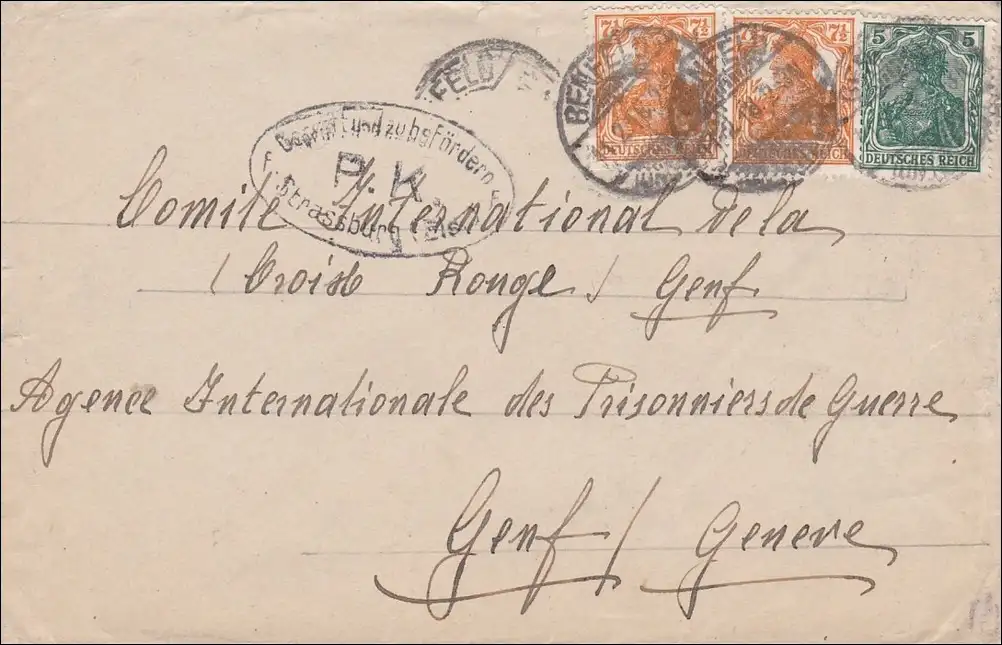 7½ 7½ 5
DEUTSCHES REICH DEUTSCHES REICH DEUTSCHES REICH
FELD
BEN
Geprüft und zu befördern
P. K.
Strassburg (Els.)
Comité International de la
(Croix Rouge) Genf
Agence Internationale des Prisonniers de Guerre
Genf / Geneve